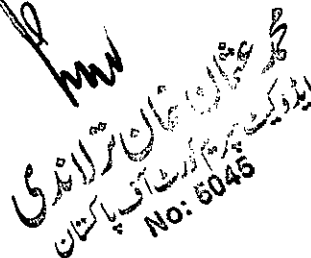 محمد عثمان خان ترلاندی
ایڈوکیٹ سپریم کورٹ آف پاکستان
No: 5045